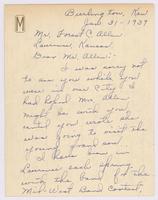 M
Burlington, Kan
Jan 31-1939
Mr. Forest C. Allen
Lawrence, Kansas
Dear Mr. Allen:-
I was sorry not
to see you while you
were in our City. I
had hoped Mrs. Allen
might be with you
until you wrote she
was going to visit the
young grand son.
I have been in
Lawrence each spring
with the band for the
Mid-West Band Contest.